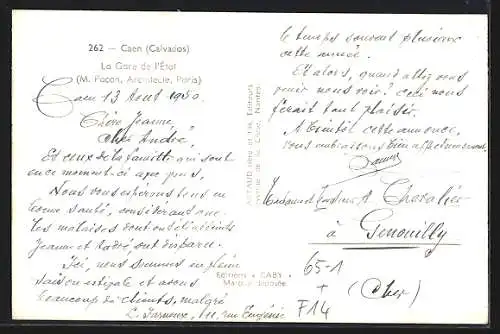 262 — Caen (Calvados)
La Gare de l'État
(M. Façon, Architecte, Paris)
Caen 13 Aout 1950.
Chère Jeanne
Cher André
Et ceux de la famille qui sont
en ce moment-ci avec vous,
Nous vous espérons tous en
bonne santé, considérant que
les malaises dont ont été atteints
Jeanne et André ont disparu.
Ici, nous sommes en pleine
saison estivale et avons
beaucoup de clients, malgré
le temps souvent pluvieux
cette année.
Et alors, quand allez vous
venir nous voir? Ceci nous
ferait tant plaisir.
A bientôt cette annonce,
nous vous embrassons bien affectueusement.
ARTAUD Père et Fils, Éditeurs
Nantes
Chevalier
à
Genouilly
(Cher)
Editions "GABY"
Marque Déposée
rue Eugénie
65-1
+
F14